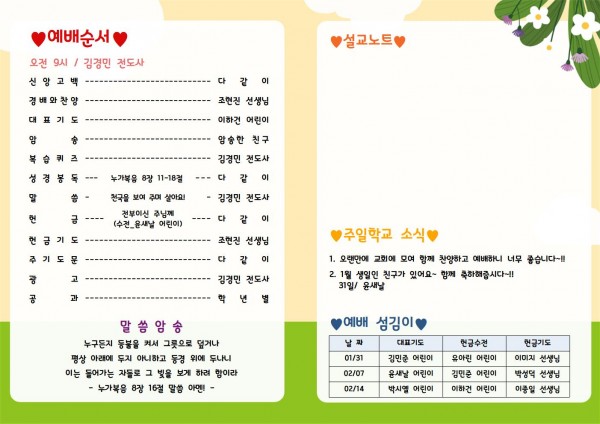 예배순서
오전 9시 / 김경민 전도사
신 앙 고 백 ---------------------------- 다 같 이
경 배 와 찬 양 ---------------------------- 조현진 선생님
대 표 기 도 ---------------------------- 이하건 어린이
암 송 ---------------------------- 암송한 친구
복 습 퀴 즈 ---------------------------- 김경민 전도사
성 경 봉 독 --- 누가복음 8장 11-18절 --- 다 같 이
말 씀 - 천국을 보여 주며 살아요! - 김경민 전도사
헌 금 ---- 전부이신 주님께 ---- 다 같 이
(수전_윤새날 어린이)
헌 금 기 도 ---------------------------- 조현진 선생님
주 기 도 문 ---------------------------- 다 같 이
광 고 ---------------------------- 김경민 전도사
공 과 ---------------------------- 학 년 별
말 씀 암 송
누구든지 등불을 켜서 그릇으로 덮거나
평상 아래에 두지 아니하고 등경 위에 두나니
이는 들어가는 자들로 그 빛을 보게 하려 함이라
- 누가복음 8장 16절 말씀 아멘! -
설교노트
주일학교 소식
1. 오랜만에 교회에 모여 함께 찬양하고 예배하니 너무 좋습니다~!!
2. 1월 생일인 친구가 있어요~ 함께 축하해줍시다~!!
31일/ 윤새날
예배 섬김이
날 짜 대표기도 헌금수전 헌금기도
01/31 김민준 어린이 유아린 어린이 이미지 선생님
02/07 윤새날 어린이 김민준 어린이 박성덕 선생님
02/14 박시엘 어린이 이하건 어린이 이종일 선생님